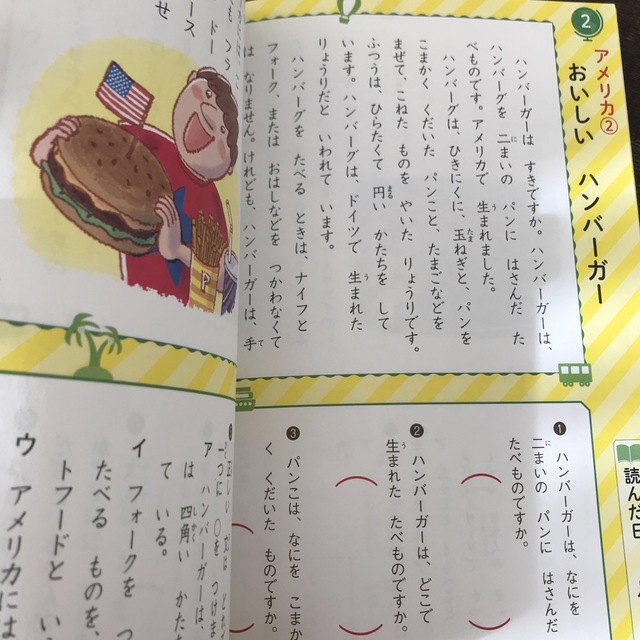 2
アメリカ②
おいしい ハンバーガー
ハンバーガーは すきですか。ハンバーガーは、
ハンバーグを 二まいの パンに はさんだ た
に
べものです。アメリカで 生まれました。
う
ハンバーグは、ひきにくに、玉ねぎと、パンを
たま
こまかく くだいた パンこと、たまごなどを
まぜて、こねた ものを やいた りょうりです。
ふつうは、ひらたくて 円い かたちを して
まる
います。ハンバーグは、ドイツで 生まれた
う
りょうりだと いわれて います。
ハンバーグを たべる ときは、ナイフと
フォーク、または おはしなどを つかわなくて
は なりません。けれども、ハンバーガーは、手
て
読んだ日
❶ ハンバーガーは、なにを
二まいの パンに はさんだ
に
たべものですか。
❷ ハンバーガーは、どこで
生まれた たべものですか。
う
❸ パンこは、なにを こまか
く くだいた ものですか。
一つに ○を つけま
ア ハンバーガーは、
は 四角い かた
て いる。
イ フォークを つ
たべる ものを、
トフードと い
ウ アメリカには
P